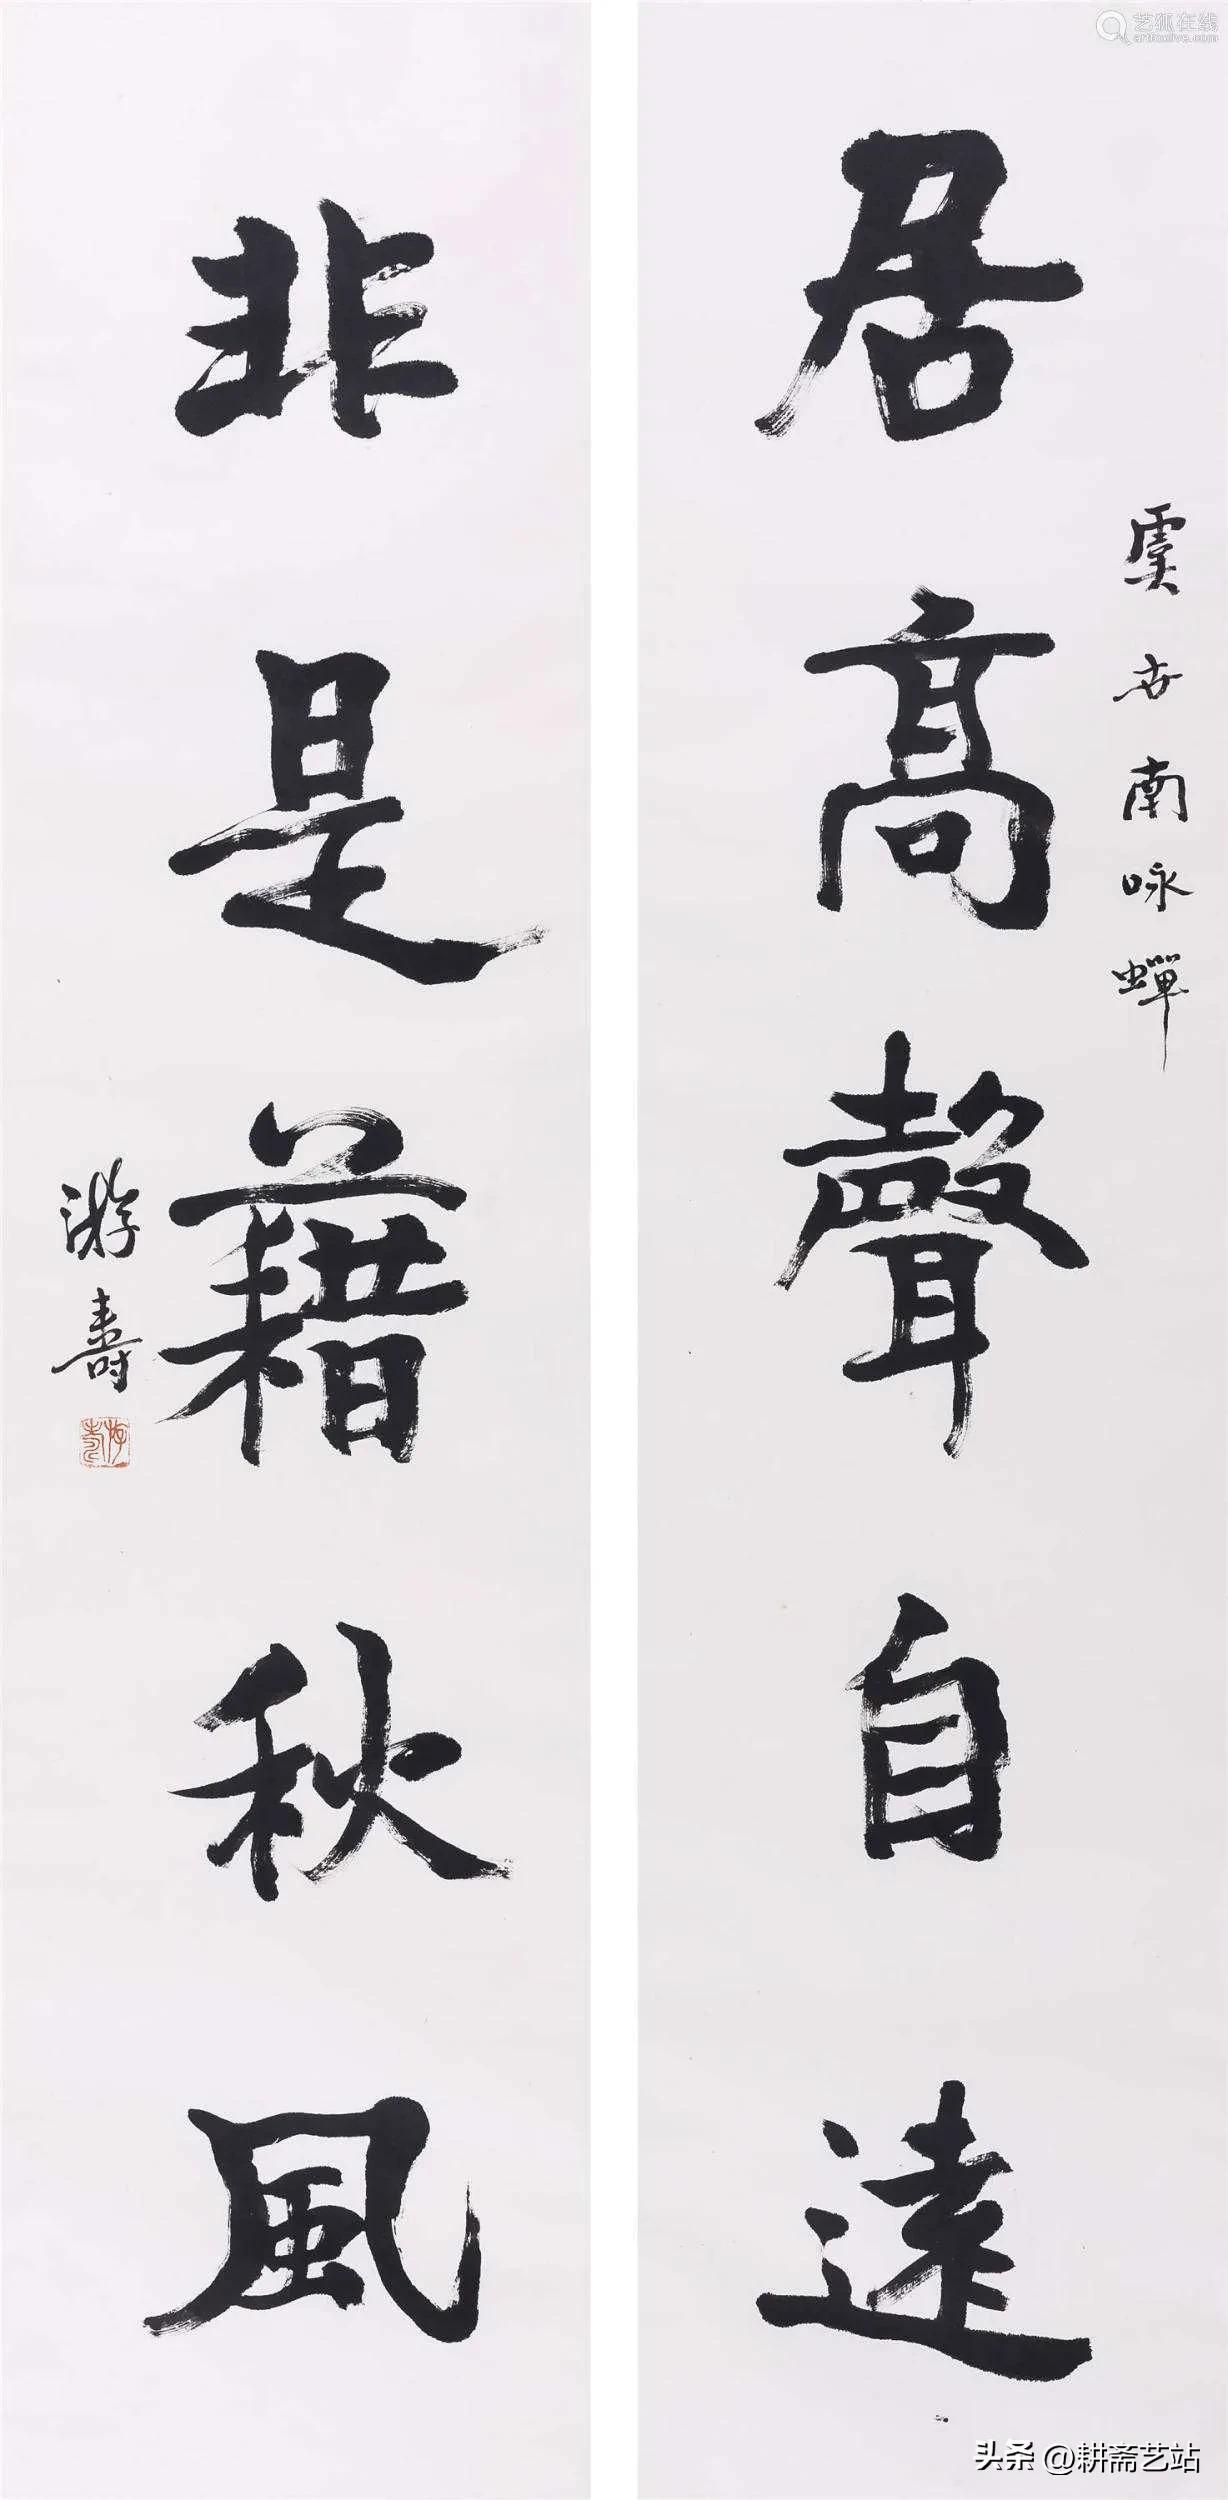 艺狐在线
artfoxlive.com
居高聲自遠
虞世南咏蟬
非是藉秋風
游壽
头条@耕斋艺站